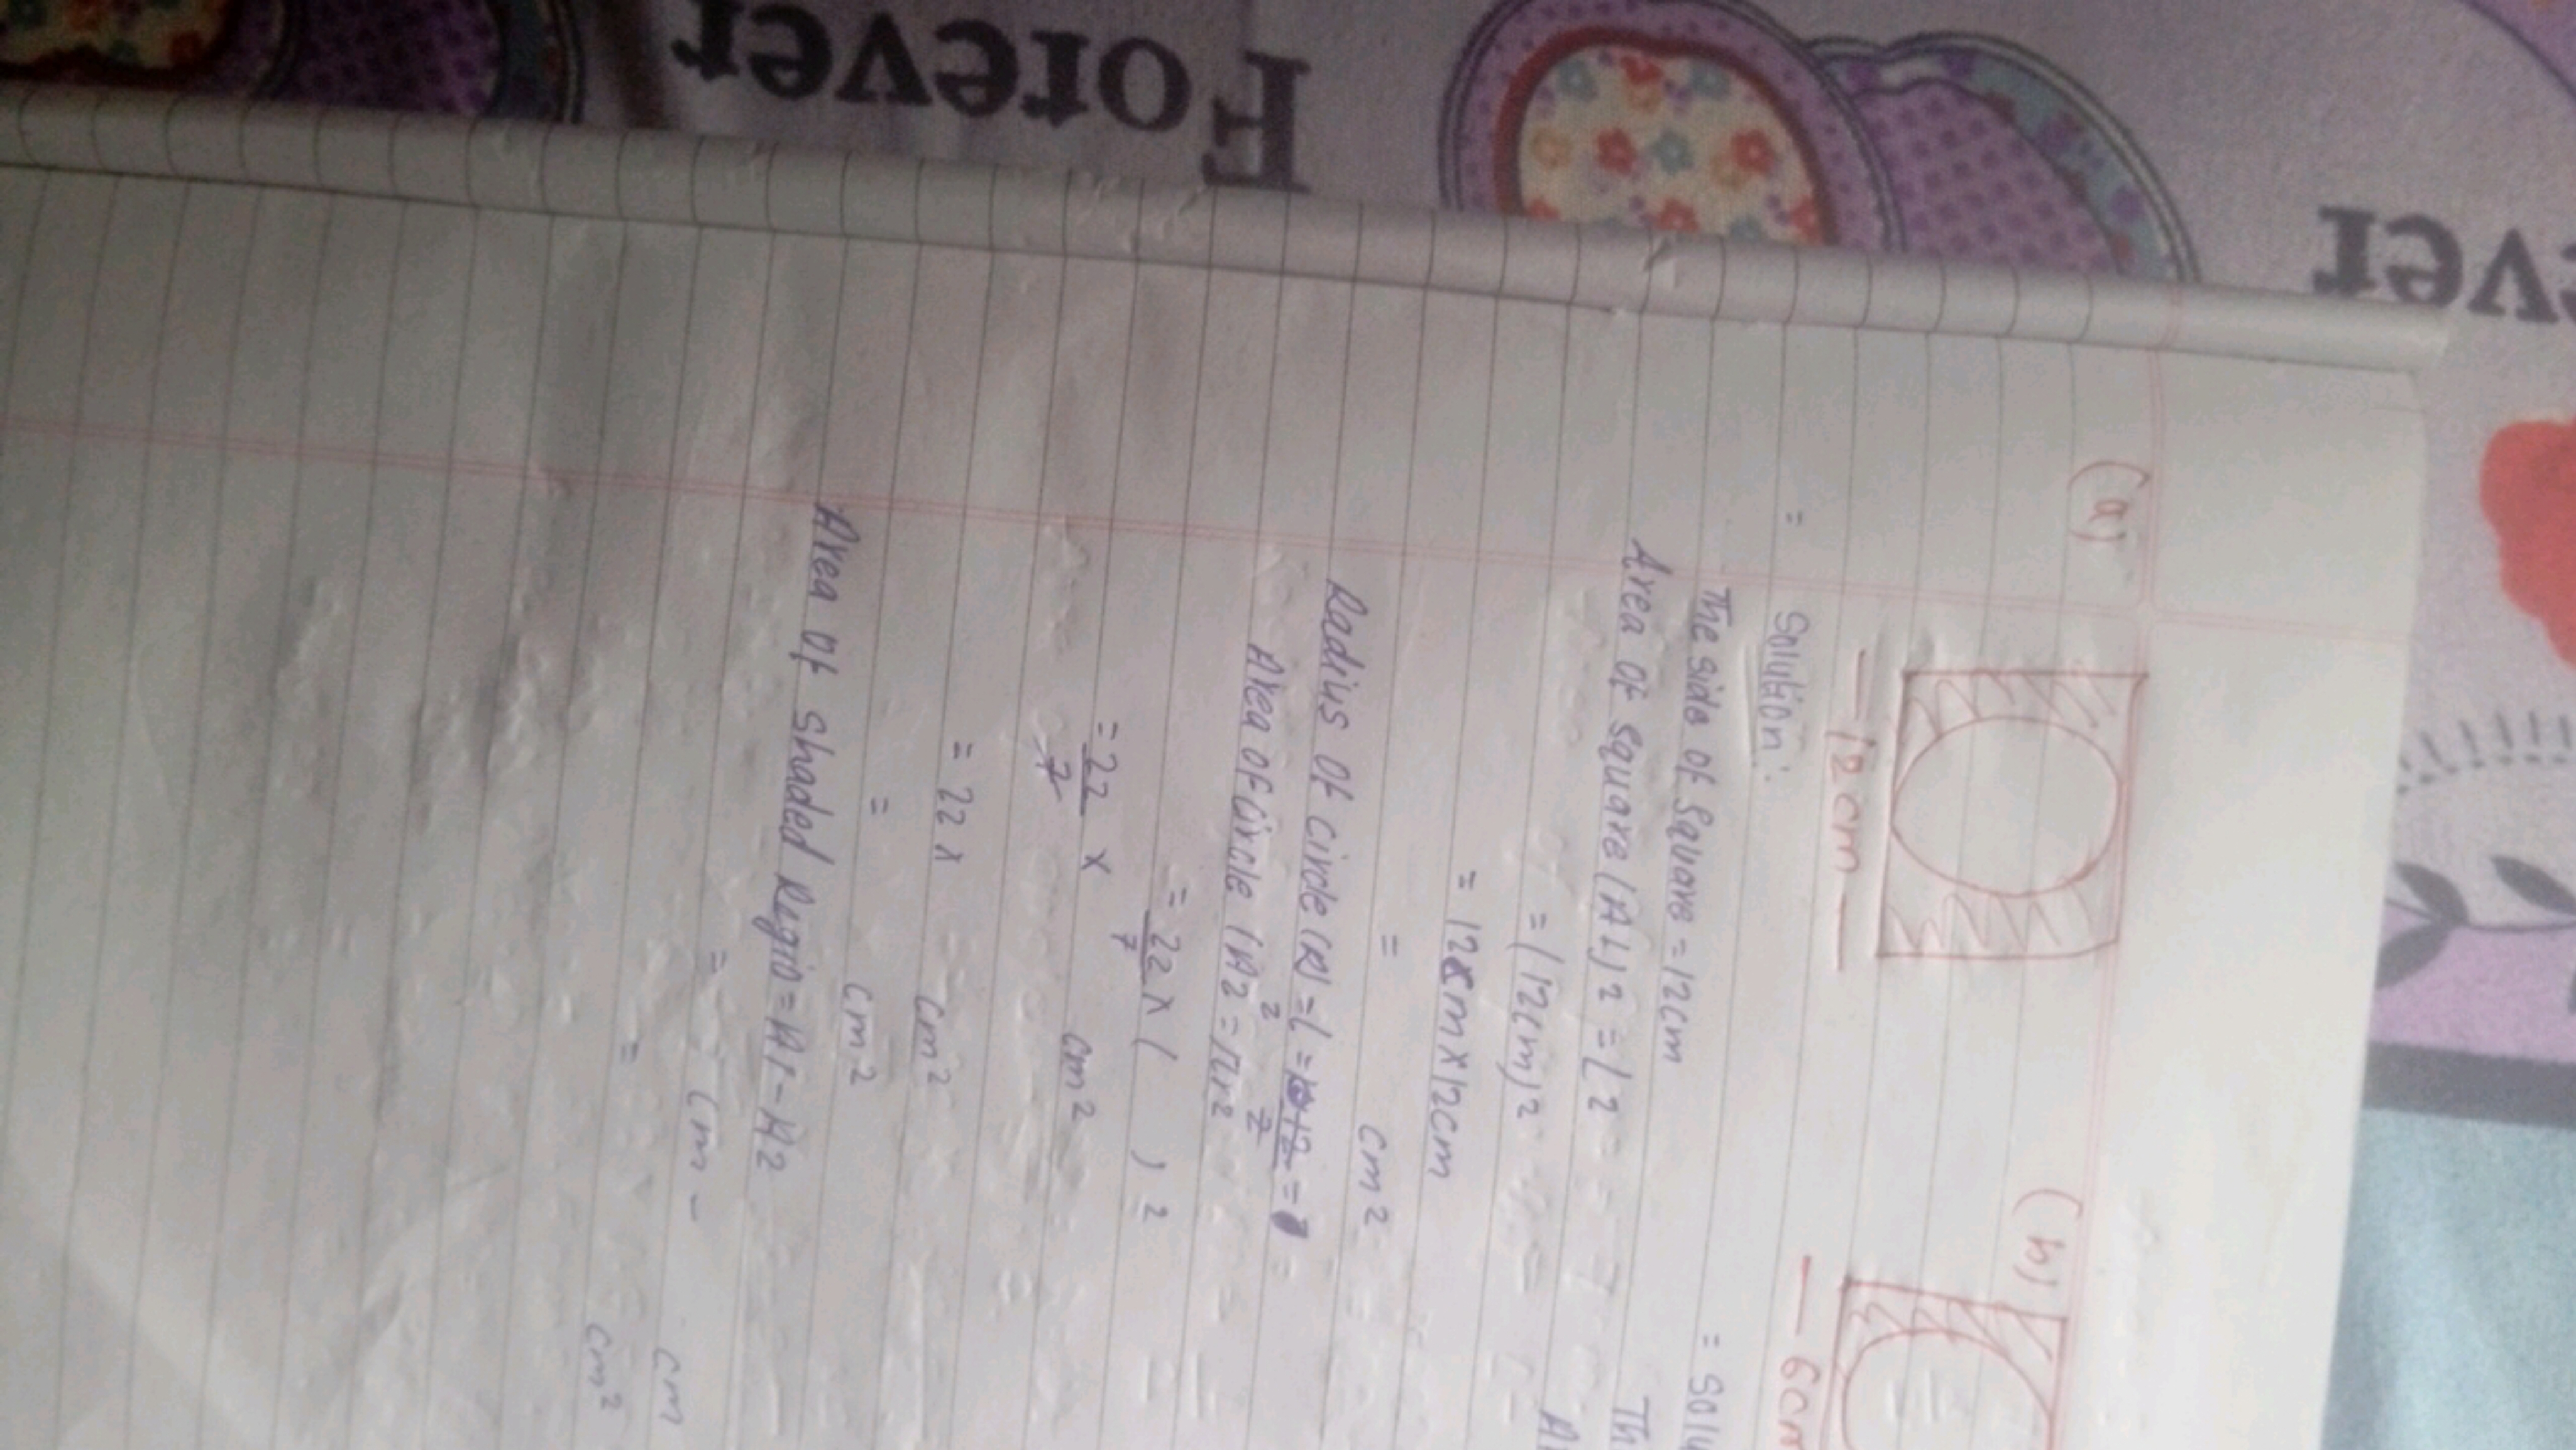 Forever
ver
(a)
(b)
— 12 cm —
— 6cm
= Solution:
The side of Square = 12cm
Area of square (A1)2 = L2
= (12cm)2
= 12cm x 12cm
= cm2
Radius of circle (R) = L = 12 =
2 2
Area of circle (A2 = πr2
= 22 x ( ) 2
7
= 22 x cm2
7
= 22 x cm2
= cm2
Area of shaded Regio = A1 - A2
= cm - cm
= cm2
= Solu
Th
A